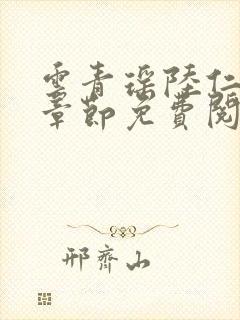 雲青瑶陸仁
章節免費閱
邢齊山